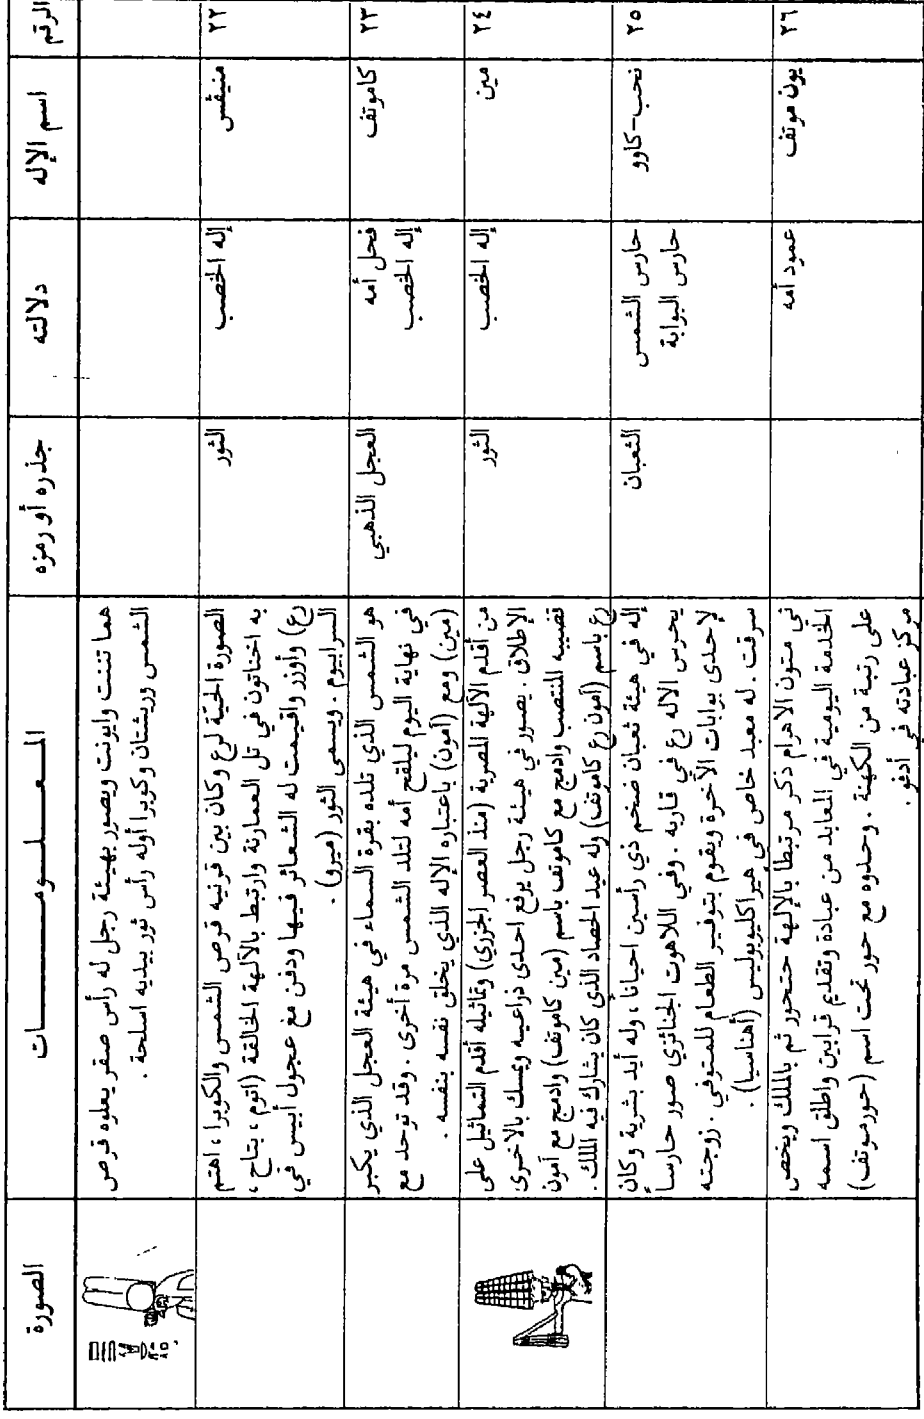 الرقم
اسم الإله
دلالته
جذره أو رمزه
المعلومات
الصورة
هما تننت وايونت ويصور بهيئة رجل له رأس صقر يعلوه قرص
الشمس وريشتان وكوبرا أوله رأس ثور بيديه اسلحة .
٢٢
منيفس
إله الخصب
الثور
الصورة الحيّة لرع وكان بين قرنيه قرص الشمس والكوبرا ، اهتم
به اخناتون في تل العمارنة وارتبط بالآلهة الخالقة (اتوم ، بتاح ،
رع) وأوزر واقيمت له الشعائر فيها ودفن مع عجول أبيس في
السرابيوم . ويسمى الثور (ميرو) .
٢٣
كاموتف
فحل أمه
إله الخصب
العجل الذهبي
هو الشمس الذي تلده بقرة السماء في هيئة العجل الذي يكبر
في نهاية اليوم ليلقح أمه لتلد الشمس مرة أخرى . وقد توحد مع
(مين) ومع (أمون) باعتباره الإله الذي يخلق نفسه بنفسه .
٢٤
مين
إله الخصب
الثور
من أقدم الآلهة المصرية (منذ العصر الجزري) وتماثيله أقدم التماثيل على
الإطلاق . يصور في هيئة رجل يرفع احدى ذراعيه ويمسك بالأخرى
قضيبه المنتصب وادمج مع كاموتف باسم (مين كاموتف) وادمج مع آمون
رع باسم (آمون رع كاموتف) وله عيد الحصاد الذي كان يشارك فيه الملك .
٢٥
نحب-كاوو
حارس الشمس
حارس البوابة
الثعبان
إله في هيئة ثعبان ضخم ذي رأسين احياناً ، وله أيد بشرية وكان
يحرس الاله رع في قاربه . وفي اللاهوت الجنائزي صور حارساً
لإحدى بوابات الآخرة ويقوم بتوفير الطعام للمتوفي . زوجته
سرقت . له معبد خاص في هيراكليوبوليس (أهناسيا) .
٢٦
يون موتف
عمود أمه
في متون الاهرام ذكر مرتبطا بالإلهة حتحور ثم بالملك ويختص
الخدمة اليومية في المعابد من عبادة وتقديم قرابين واطلق اسمه
على رتبة من الكهنة . وحدوه مع حور تحت اسم (حورموتف)
مركز عبادته في أدفو .